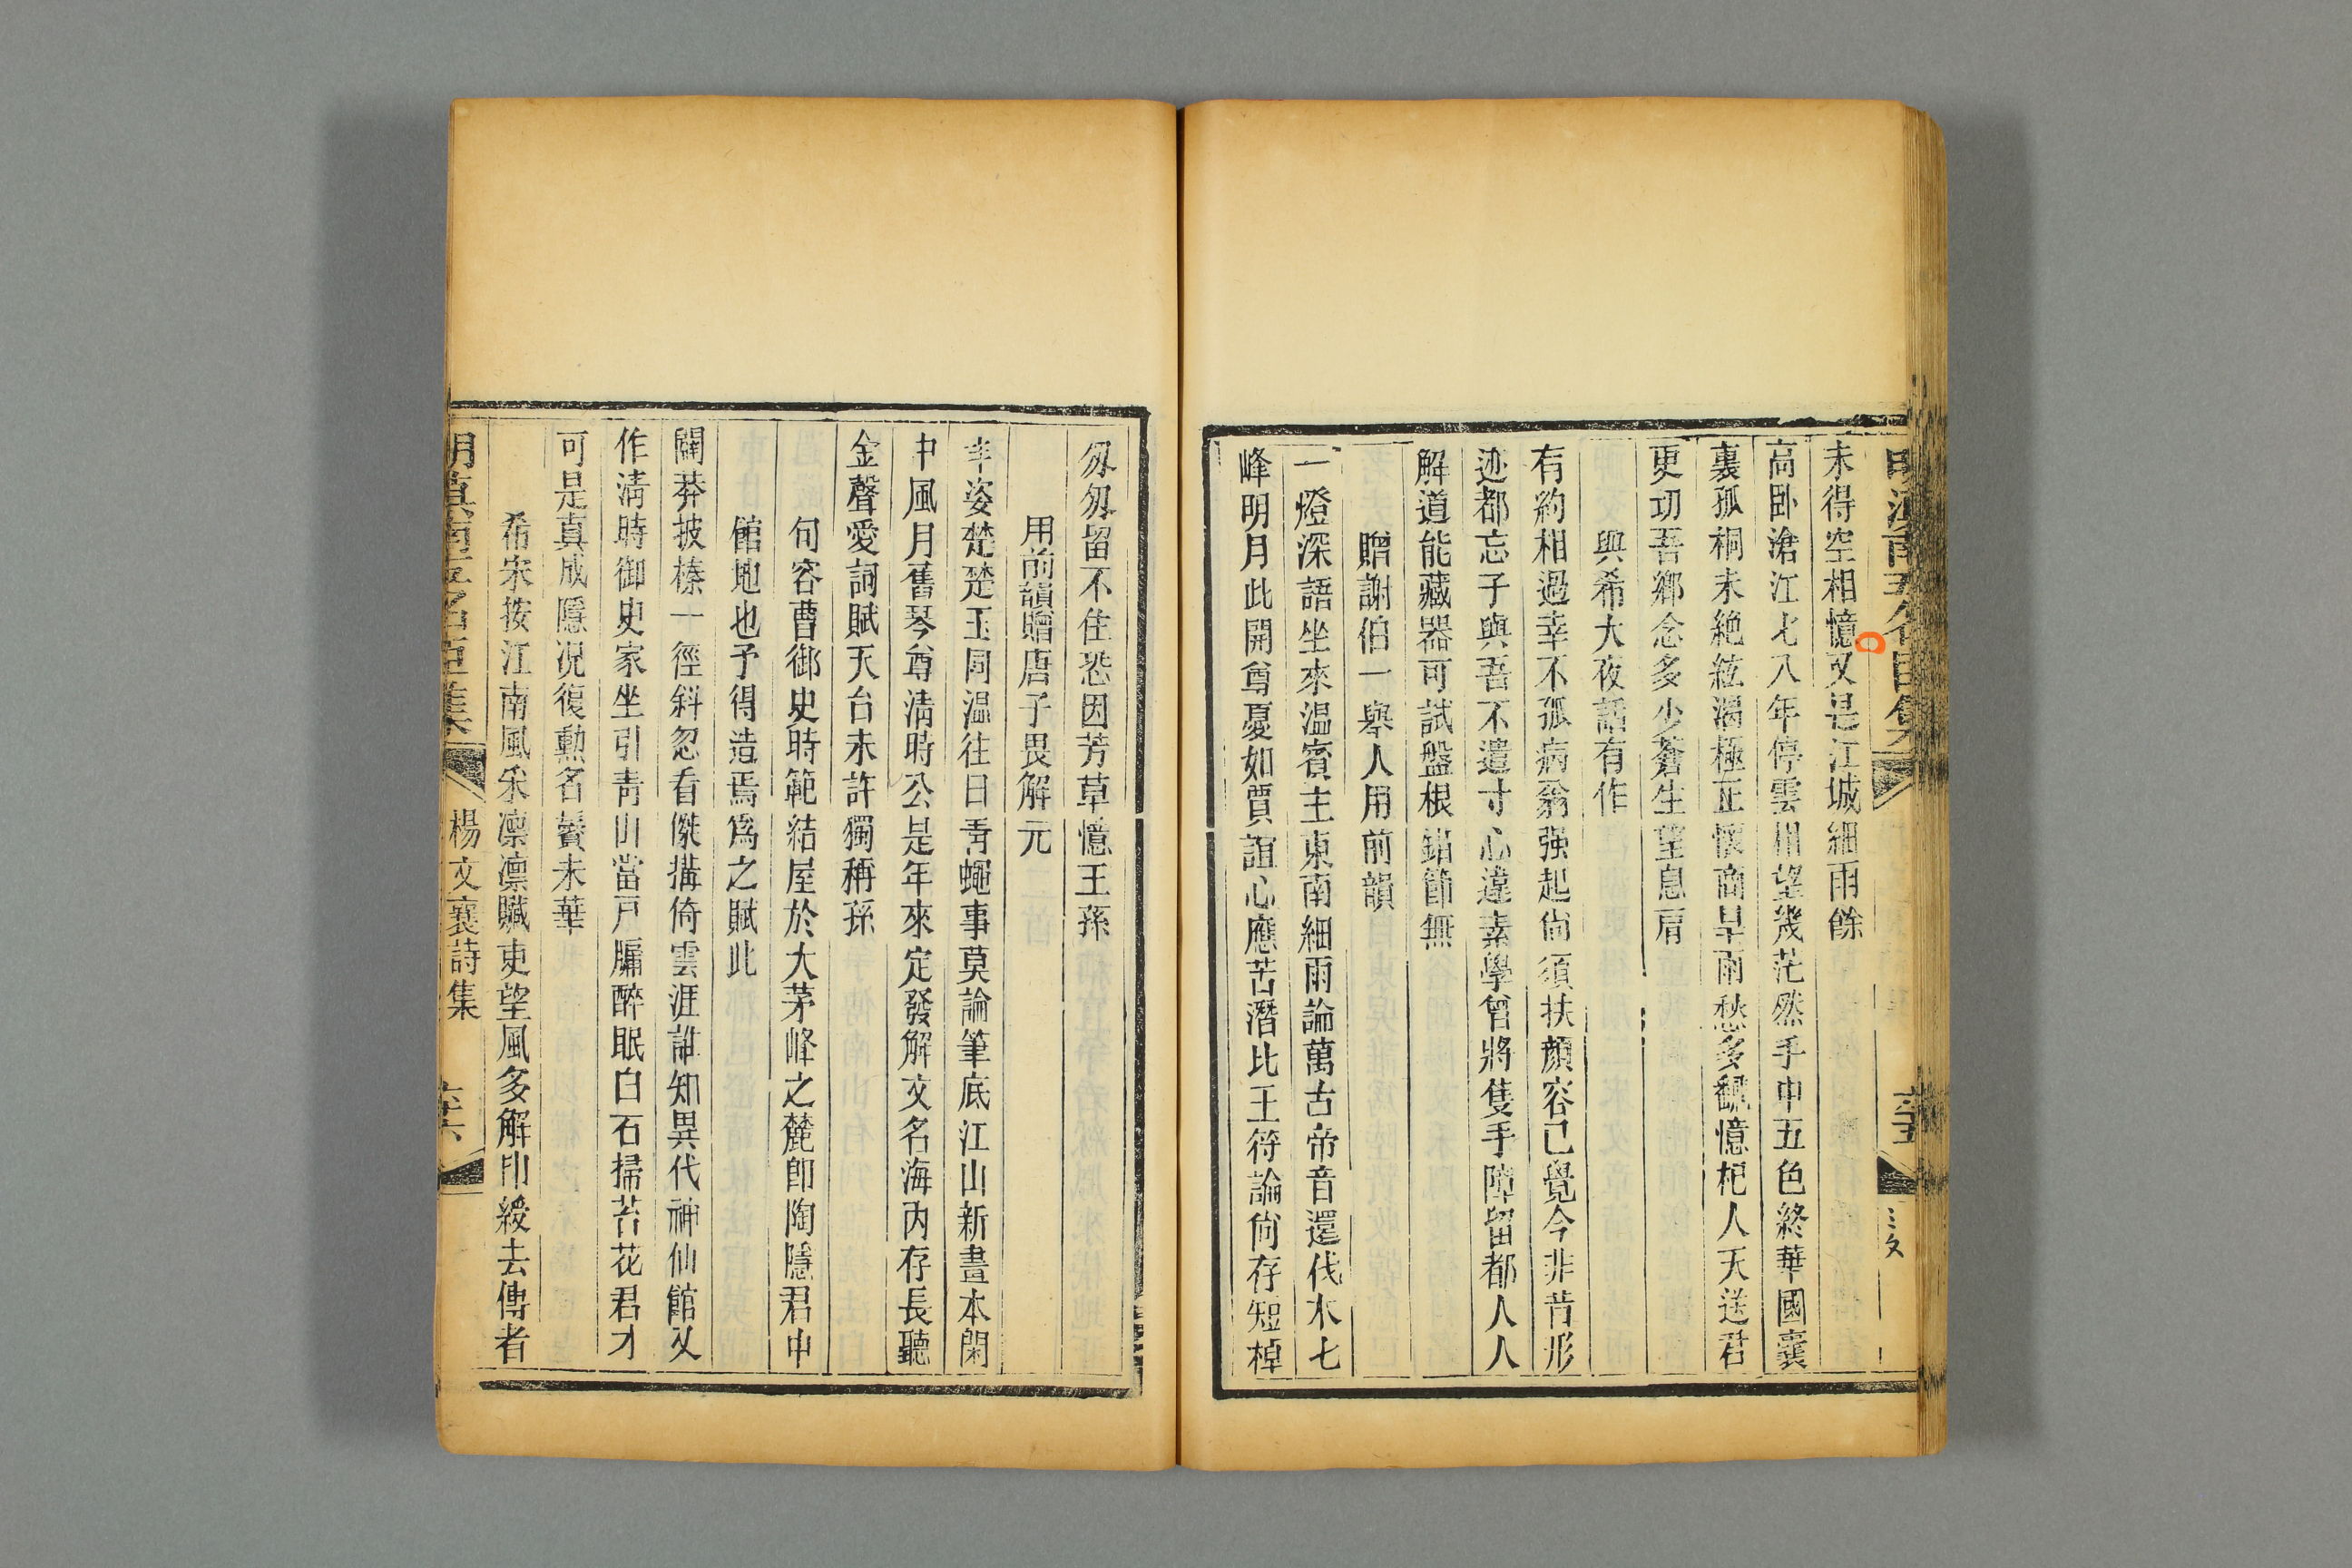 未得空相憶又是江城細雨餘
高卧滄江七八年停雲州望幾茫然手中五色終華國囊
裏孤桐未絶絃渴極正懷商旱雨愁多翻憶杞人天送君
更切吾鄉念多少蒼生望息肩
與希大夜話有作
有約相過幸不孤病翁强起尙須扶顔容已覺今非昔形
迹都忘子與吾不遣寸心違素學曾將隻手障留都人人
解道能藏器可試盤根錯節無
贈謝伯一舉人用前韻
一燈深語坐來温賓主東南細雨論萬古帝音還伐木七
峰明月此開尊憂如賈誼心應苦潛比王符論尙存短棹
匆匆留不住恐因芳草憶王孫
用前韻贈唐子畏解元
丰姿楚楚玉同温往日靑蠅事莫論筆底江山新畫本閑
中風月舊琴尊淸時公是年來定發解文名海內存長聽
金聲愛詞賦天台未許獨稱孫
句容曹御史時範結屋於大茅峰之麓卽陶隱君中
館地也予得造焉爲之賦此
闢莽披榛一徑斜忽看傑搆倚雲涯誰知異代神仙館又
作淸時御史家坐引靑山當戸牖醉眠白石掃苔花君才
可是真成隱况復勳名鬢未華
希宋按江南風采凛凛贜吏望風多解印綬去傳者
明滇南五名臣集
楊文襄詩集